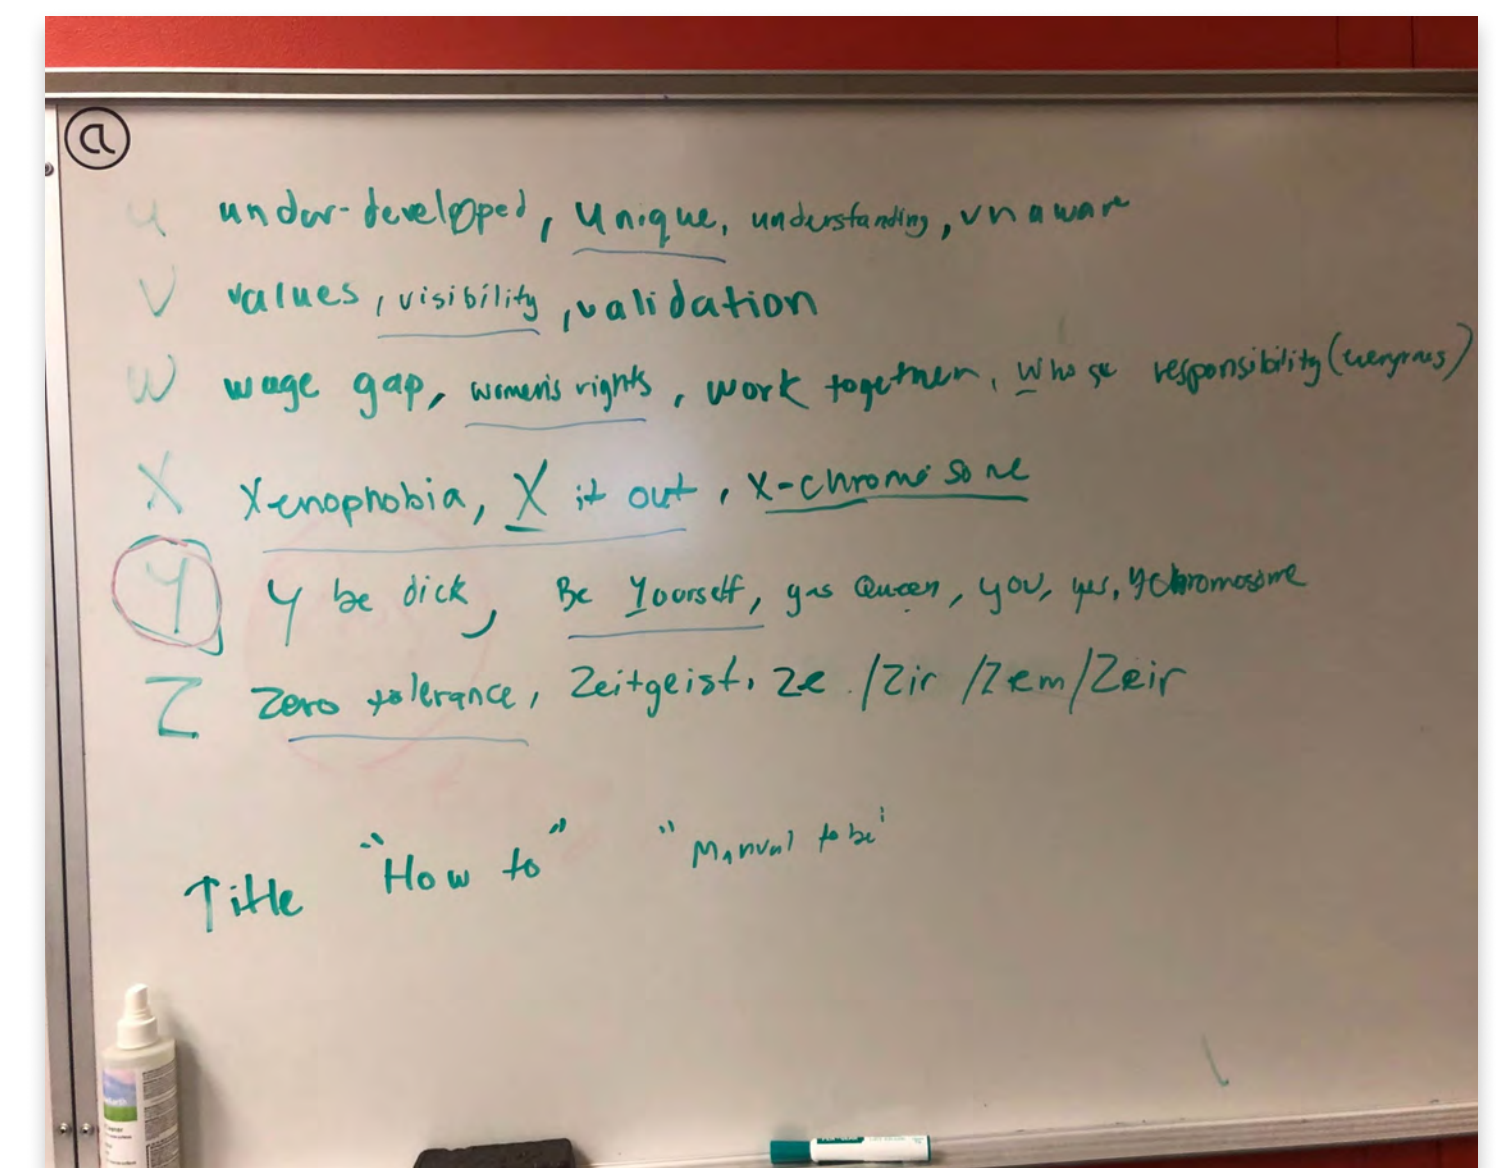 a
u under-developed, Unique, understanding, unaware
V values, visibility, validation
W wage gap, women's rights, work together, Whose responsibility (everyones)
X Xenophobia, X it out, X-chromosone
Y Y be dick, Be Yourself, yas Queen, you, yes, Ychromosome
Z Zero tolerance, Zeitgeist, Ze /Zir /Zem/Zeir
Title "How to" "Manual to be"